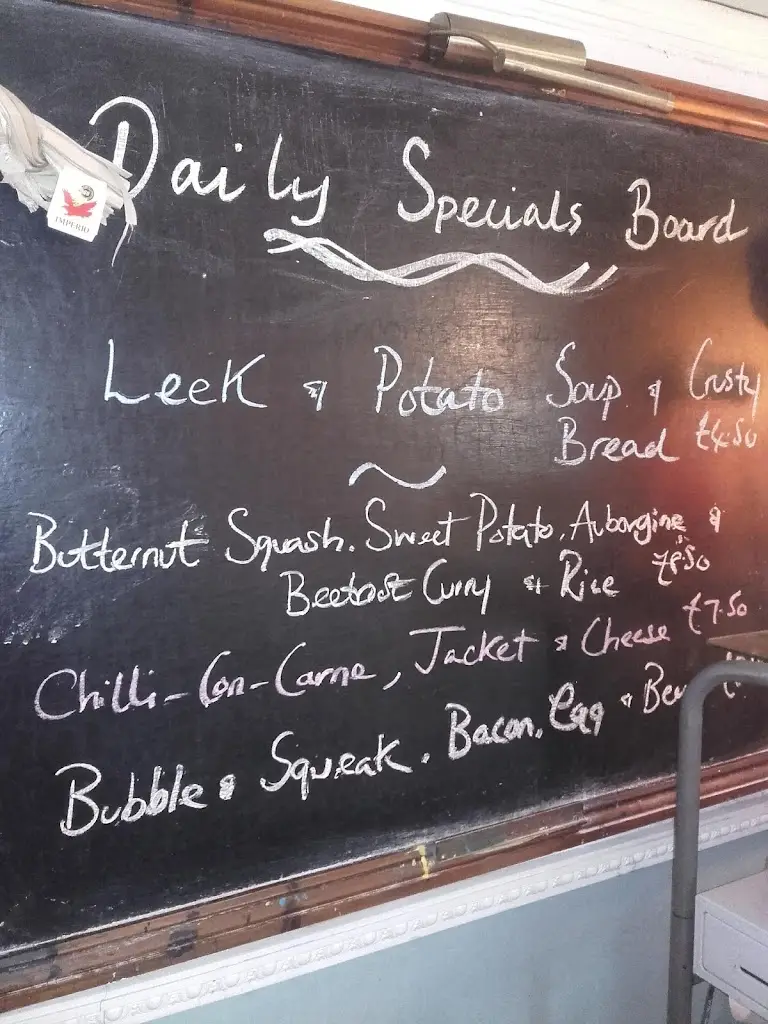 Daily Specials Board
IMPERIO
Leek & Potato Soup & Crusty
Bread £4.50
Butternut Squash, Sweet Potato, Aubergine &
Beetroot Curry & Rice £8.50
Chilli-Con-Carne, Jacket & Cheese £7.50
Bubble & Squeak, Bacon, Egg &